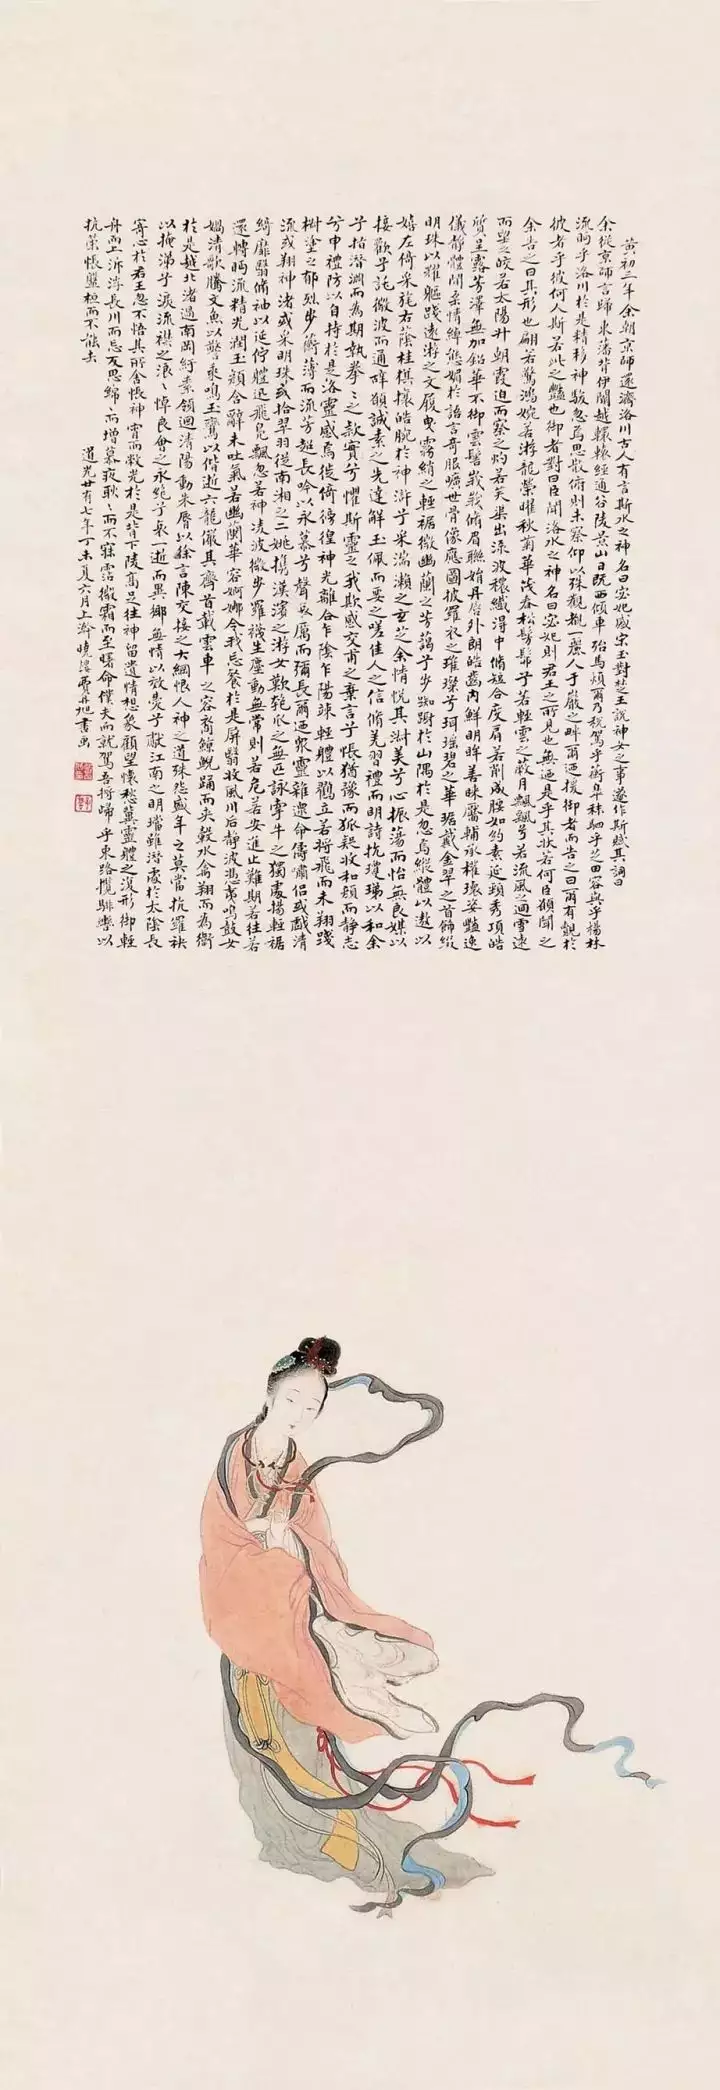 黃初三年余朝京師還濟洛川古人有言斯水之神名曰宓妃感宋玉對楚王說神女之事遂作斯賦其詞曰
余從京師言歸東藩背伊闕越轘轅經通谷陵景山日既西傾車殆馬煩爾乃稅駕乎蘅皐秣駟乎芝田容與乎楊林
流眄乎洛川於是精移神駭忽焉思散俯則未察仰以殊觀覩一麗人于巖之畔爾迺援御者而告之曰爾有覿於
彼者乎彼何人斯若此之豔也御者對曰臣聞洛水之神名曰宓妃則君王之所見也無迺是乎其狀若何臣願聞之
余告之曰其形也翩若驚鴻婉若游龍榮曜秋菊華茂春松髣髴兮若輕雲之蔽月飄飄兮若流風之迴雪遠
而望之皎若太陽升朝霞迫而察之灼若芙蕖出淥波穠纖得中脩短合度肩若削成腰如約素延頸秀項皓
質呈露芳澤無加鉛華不御雲髻峩峩脩眉聯娟丹脣外朗皓齒內鮮明眸善睞靨輔承權瓌姿豔逸
儀靜體閒柔情綽態媚於語言奇服曠世骨像應圖披羅衣之璀璨兮珥瑤碧之華琚戴金翠之首飾綴
明珠以耀軀踐遠游之文履曳霧綃之輕裾微幽蘭之芳藹兮步踟躕於山隅於是忽焉縱體以遨以
嬉左倚采旄右蔭桂旗攘皓腕於神滸兮采湍瀨之玄芝余情悅其淑美兮心振蕩而怡無良媒以
接歡兮託微波而通辭願誠素之先達解玉佩而要之嗟佳人之信脩羌習禮而明詩抗瓊珶以和余
兮指潛淵而為期執拳々之款實兮懼斯靈之我欺感交甫之棄言兮悵猶豫而狐疑收和顏而靜志
兮申禮防以自持於是洛靈感焉徙倚徬徨神光離合乍陰乍陽竦輕體以鶴立若將飛而未翔踐
椒塗之郁烈步蘅薄而流芳超長吟以永慕兮聲哀厲而彌長爾迺衆靈雜遝命儔嘯侶或戲清
流或翔神渚或采明珠或拾翠羽從南湘之二姚攜漢濱之游女歎匏瓜之無匹詠牽牛之獨處揚輕裾
綺靡翳脩袖以延佇體迅飛鳧飄忽若神凌波微步羅襪生塵動無常則若危若安進止難期若往若
還轉眄流精光潤玉顏含辭未吐氣若幽蘭華容婀娜令我忘餐於是屏翳收風川后靜波馮夷鳴鼓女
媧清歌騰文魚以警乘鳴玉鸞以偕逝六龍儼其齊首載雲車之容裔鯨鯢踴而夾轂水禽翔而為衛
於是越北渚過南岡紆素領迴清陽動朱脣以徐言陳交接之大綱恨人神之道殊怨盛年之莫當抗羅袂
以掩涕兮淚流襟之浪々悼良會之永絕兮哀一逝而異鄉無情以效愛兮獻江南之明璫雖潛處於太陰長
寄心於君王忽不悟其所舍悵神宵而蔽光於是背下陵高足往神留遺情想象顧望懷愁冀靈體之復形御輕
舟而上泝浮長川而忘反思綿々而增慕夜耿々而不寐霑微霜而至曙命僕夫而就駕吾將歸乎東路攬騑轡以
抗策悵盤桓而不能去
道光廿有七年丁未夏六月上澣曉樓費丹旭書畫